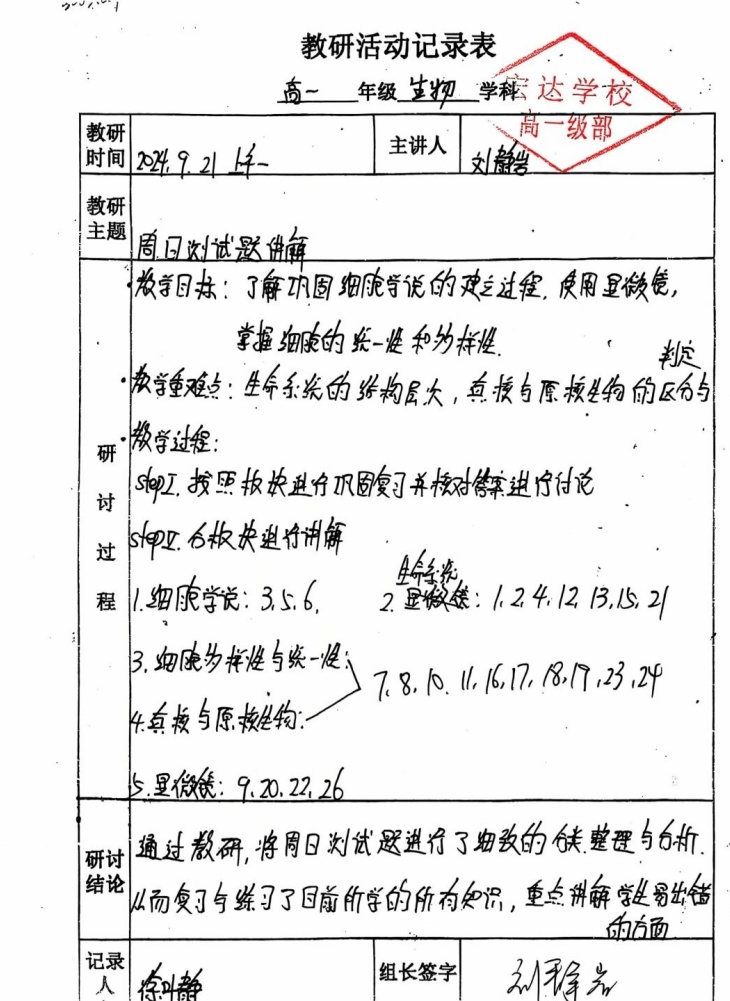 教研活动记录表
高一 年级 生物 学科
宏达学校
高一级部
教研时间 2024.9.21 上午一 主讲人 刘静岩
教研主题 周日测试题讲解
研讨过程
·教学目标：了解巩固细胞学说的建立过程，使用显微镜，
掌握细胞的统一性和多样性.
·教学重难点：生命系统的结构层次，真核与原核生物的区分与判定
·教学过程：
step I. 按照板块进行巩固复习并核对答案进行讨论
step II. 分板块进行讲解
1.细胞学说：3.5.6. 2.显微镜 生命系统：1.2.4.12.13.15.21
3.细胞多样性与统一性：
7.8.10.11.16.17.18.19.23.24
4.真核与原核生物：
5.显微镜：9.20.22.26
研讨结论
通过教研，将周日测试题进行了细致的分类整理与分析.
从而复习与练习了目前所学的所有知识，重点讲解学生易出错
的方面
记录人 徐叶静 组长签字 刘静岩